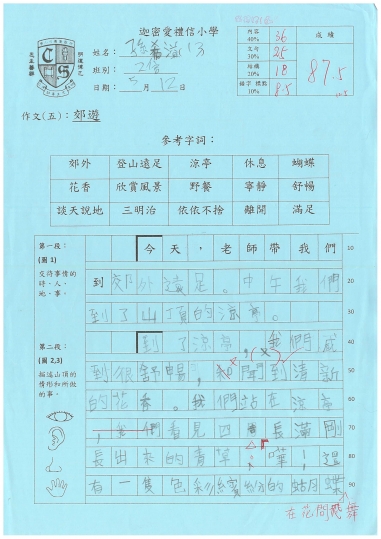 迦密愛禮信小學
姓名：
班別：
日期： 5月12日
內容 40% 36
文句 30% 25
結構 20% 18
錯字 標點 10% 8.5
成績
87.5
作文(五)：郊遊
參考字詞：
郊外 登山遠足 涼亭 休息 蝴蝶
花香 欣賞風景 野餐 寧靜 舒暢
談天說地 三明治 依依不捨 離開 滿足
第一段：
(圖1)
交待事情的時、人、地、事。
今天，老師帶我們 10
到郊外遠足。中午我們 20
到了山頂的涼亭。 30
第二段：
(圖2,3)
描述山頂的情形和所做的事。
到了涼亭，我們感 40
到很舒暢，和聞到清新 50
的花香。我們站在涼亭 60
，我們看見四處長滿剛 70
長出來的青草。嘩！還 80
有一隻色彩繽紛的蝴蝶 90
在花間飛舞